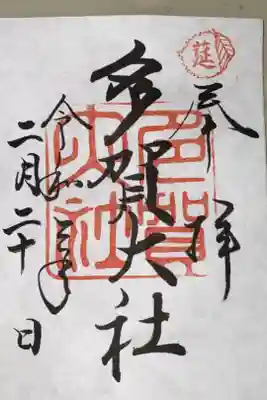 奉拝
多賀大社
令和三年
二月二十日
莚
多賀大社